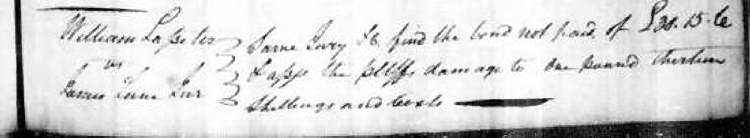 William Lasseter
vs
James Lane Junr
Same Jury &c. find the bond not paid of £20.15.6
& asses the pltffs damage to One pound thirteen
Shillings and Costs